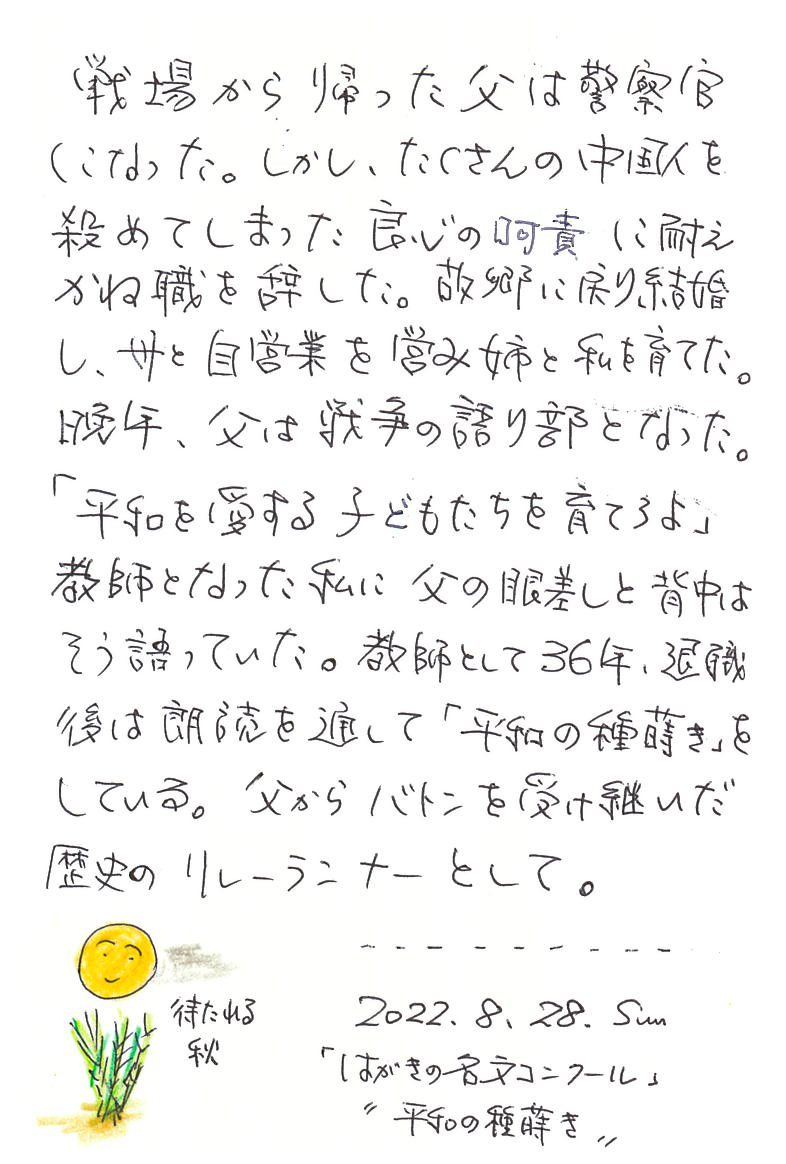 戦場から帰った父は警察官
になった。しかし、たくさんの中国人を
殺めてしまった良心の呵責に耐え
かね職を辞した。故郷に戻り、結婚
し、母と自営業を営み姉と私を育てた。
晩年、父は戦争の語り部となった。
「平和を愛する子どもたちを育てろよ」
教師となった私に父の眼差しと背中は
そう語っていた。教師として36年、退職
後は朗読を通して「平和の種蒔き」を
している。父からバトンを受け継いだ
歴史のリレーランナーとして。
待たれる
秋
2022.8.28.Sun
「はがきの名文コンクール」
〃平和の種蒔き〃